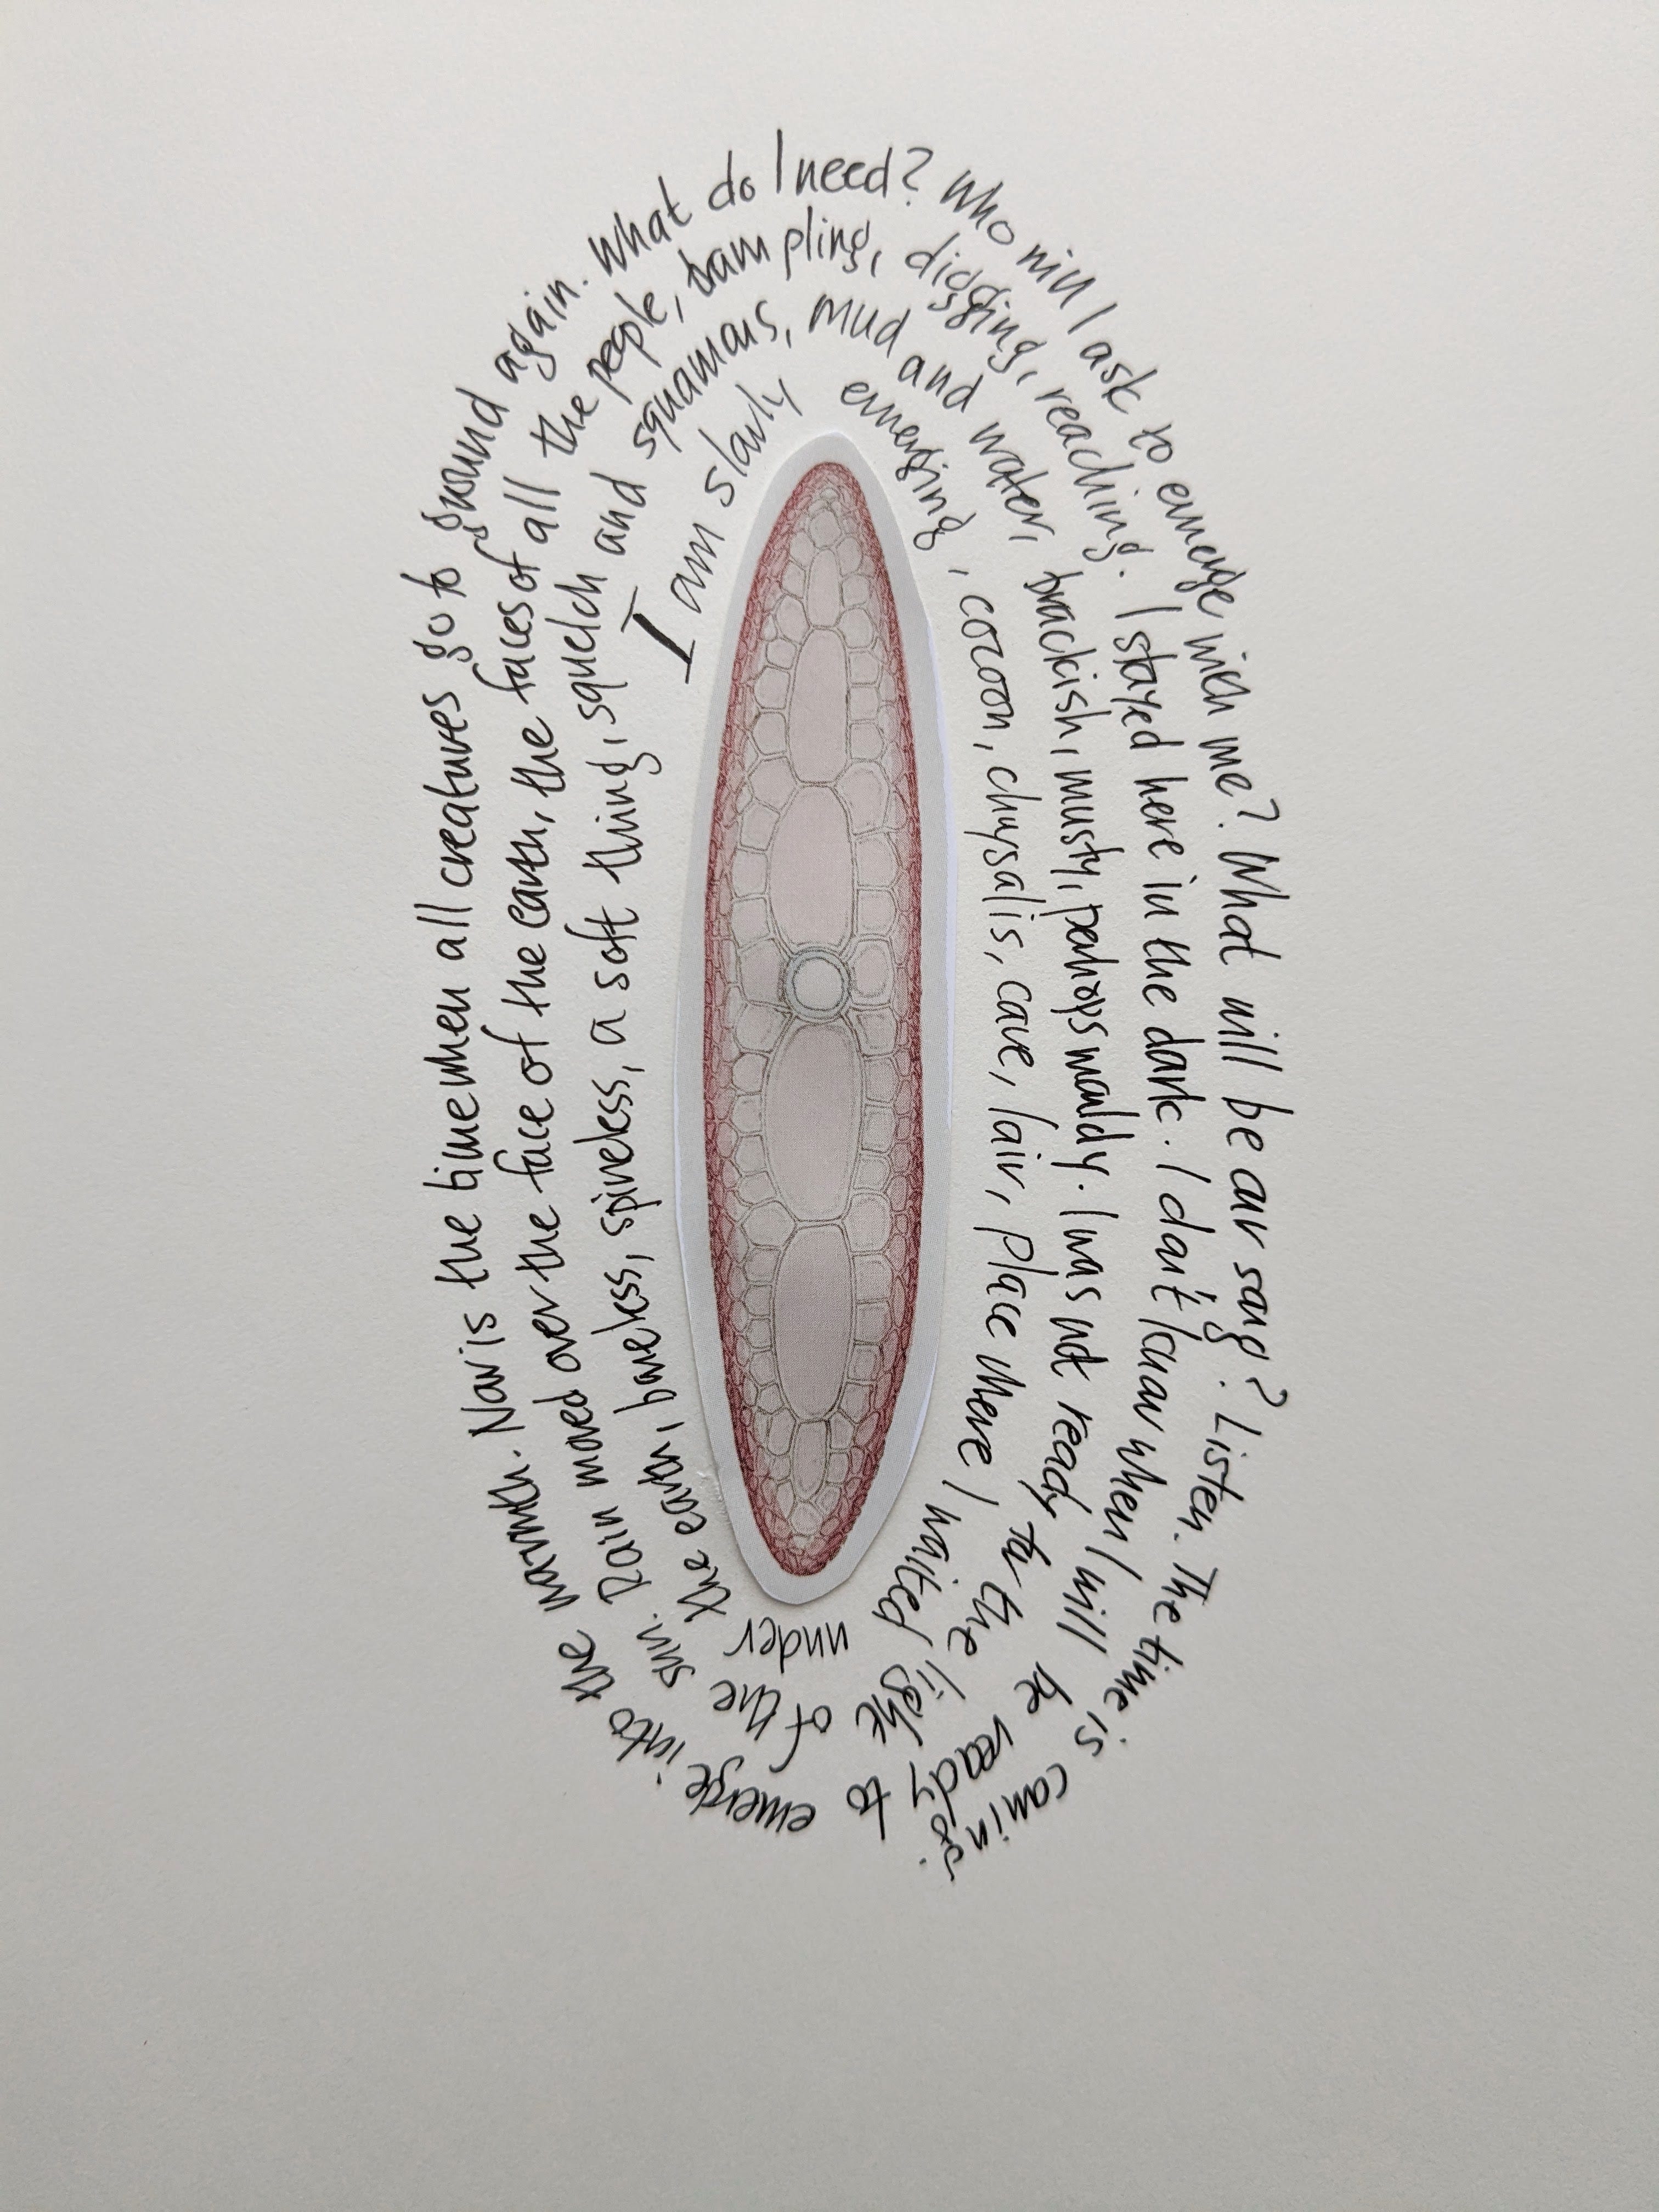 I am slowly emerging, cocoon, chrysalis, cave, lair, place where I waited
under the earth, boneless, spineless, a soft thing, squelch and squamous, mud and water, brackish, musty, perhaps mouldy. I was not ready for the light
of the sun. Rain moved over the face of the earth, the faces of all the people, trampling, digging, reaching. I stayed here in the dark. I don't know when I will be ready to
emerge into the warmth. Now is the time when all creatures go to ground again. What do I need? Who will I ask to emerge with me? What will be our song? Listen. The time is coming